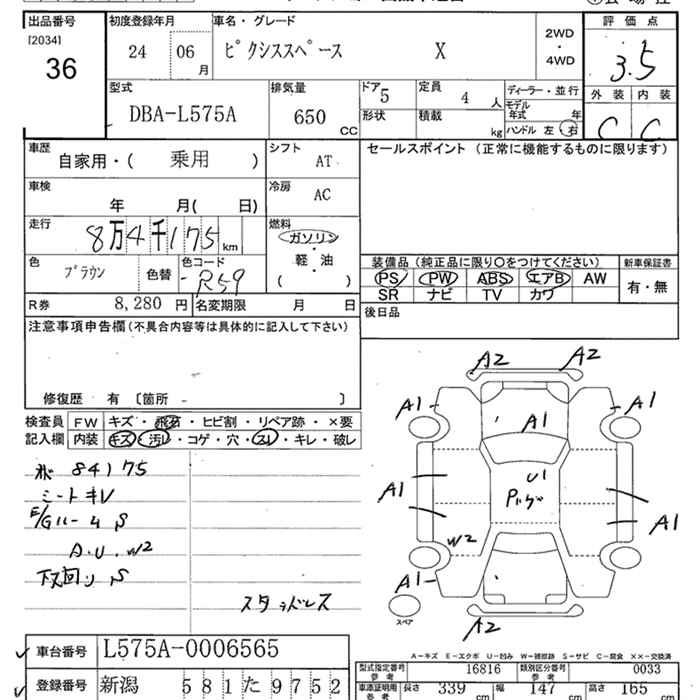 出品番号 初度登録年月 車名・グレード 評価点
[2034]
36 24 06月 ピクシススペース X 2WD・4WD 3.5
型式 排気量 ドア 定員 ディーラー・並行 外装 内装
DBA-L575A 650 CC 5 4人 モデル年式 年
形状 積載 kg ハンドル 左 右 C C
車歴 自家用・( 乗用 ) シフト AT セールスポイント (正常に機能するものに限ります)
車検 年 月( 日) 冷房 AC
走行 8万4千175 km 燃料 ガソリン・軽・油 ( )
色 ブラウン 色替 色コード R59
装備品 (純正品に限り○をつけてください) 新車保証書
PS PW ABS エアB AW 有・無
SR ナビ TV カワ
R券 8,280 円 名変期限 月 日 後日品
注意事項申告欄 (不具合内容等は具体的に記入して下さい)
修復歴 有 〔箇所 - 〕
検査員記入欄 FW キズ・飛石・ヒビ割・リペア跡・×要
内装 キズ・汚レ・コゲ・穴・スレ・キレ・破レ
84175
シートキレ
E/Gルーム S
A.U.W2
下回り S
スタッドレス
A2 A2
A1 A1
A1
U1
A1 A1
W2
A1
A2
スペア
A-キズ E-エクボ U-凹み W-補修跡 S-サビ C-腐食 ××-交換済
車台番号 L575A-0006565
型式指定番号 参考 16816 類別区分番号 参考 0033
登録番号 新潟 581た9752
車庫証明用 参考 長さ 339 cm 幅 147 cm 高さ 165 cm